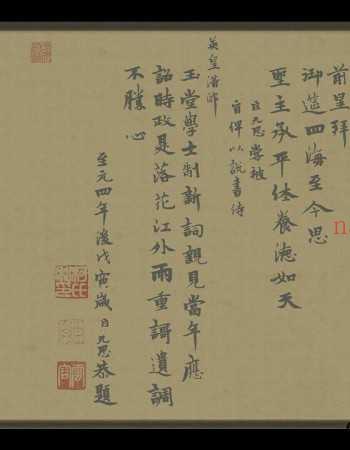 前星拜
御造四海至今思
聖主承平 養德如天
臣九思嘗被
旨俾以說書侍
英皇潛邸
玉堂學士制新詞親見當年應
詔時政是落花江外雨重謌遺調
不勝
至元四年後戊寅歲臣九思恭題
n